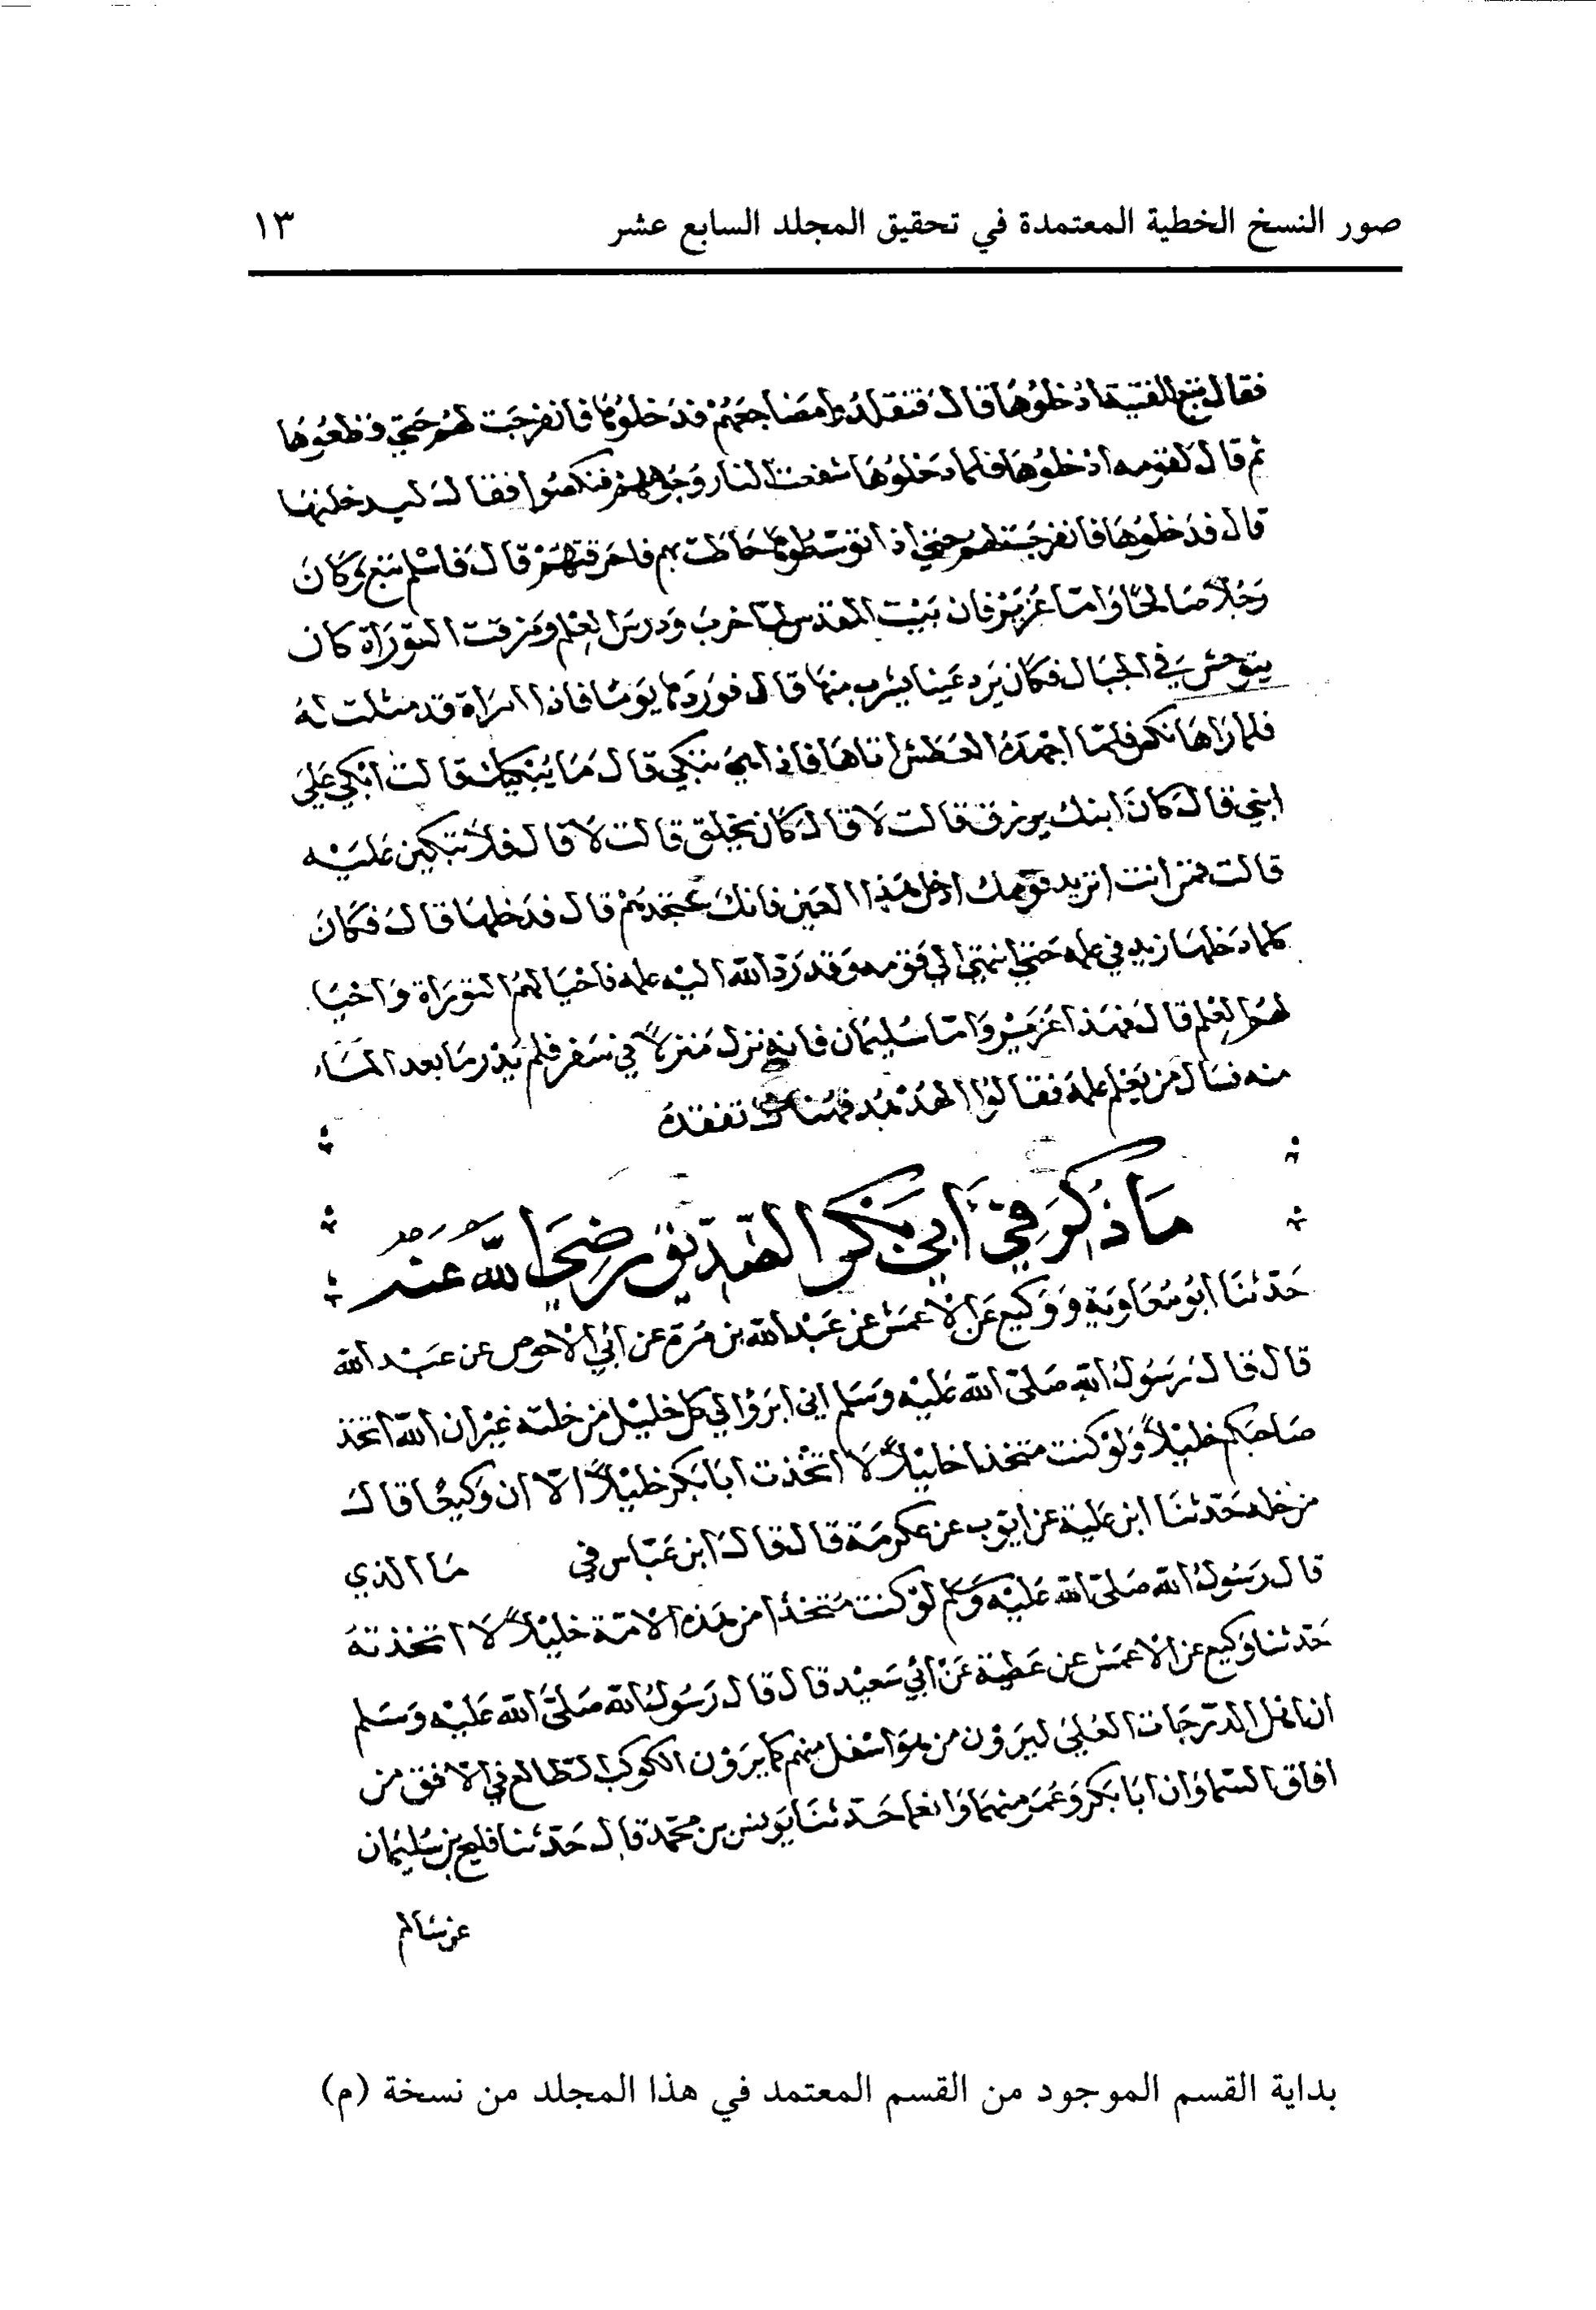 صور النسخ الخطية المعتمدة في تحقيق المجلد السابع عشر ١٣
فقال تبع للفتية ادخلوها قال فتقلدوا مصاحفهم فدخلوها فانفرجت لهم حتى قطعوها
ثم قال لقومه ادخلوها فلما دخلوها سفعت النار وجوههم فنكصوا فقال ليدخلنها
قال فدخلوها فانفرجت لهم حتى اذا توسطوها احاطت بهم فاحرقتهم قال فاسلم تبع وكان
رجلا صالحا واما عزير فان بيت المقدس لما خرب ودرس العلم ومزقت التوراة كان
يتوحش في الجبال فكان يرد عينا يشرب منها قال فوردها يوما فاذا امراة قد مثلت له
فلما راها نكص فلما اجهده العطش اتاها فاذا هي تبكي قال ما يبكيك قالت ابكي على
ابني قال كان ابنك يرزق قالت لا قال كان يخلق قالت لا قال فلا تبكين عليه
قالت فمن انت اتريد قومك ادخل هذا العين فانك تجدهم قال فدخلها قال فكان
كلما دخلها زيد في علمه حتى انتهى الى قومه وقد رد الله اليه علمه فاحيا لهم التوراة واحيا
لهم العلم قال فهذا عزير واما سليمان فانه نزل منزلا في سفر فلم يدر ما بعد الماء
منه فسال من يعلم علمه فقالوا الهدهد فهناك تفقده
مَا ذُكِرَ فِي أَبي بَكر الصّدّيق رَضِيَ اللّه عَنهُ
حدثنا ابو معاوية ووكيع عن الاعمش عن عبد الله بن مرة عن ابي الاحوص عن عبد الله
قال قال رسول الله صلى الله عليه وسلم اني ابرؤ الي كل خليل من خلته غير ان الله اتخذ
صاحبكم خليلا ولو كنت متخذا خليلا لا اتخذت ابا بكر خليلا الا ان وكيعا قال
من خله حدثنا ابن علية عن ايوب عن عكرمة قال قال ابن عباس في ما الذي
قال رسول الله صلى الله عليه وسلم لو كنت متخذا من هذه الامة خليلا لا اتخذته
حدثنا وكيع عن الاعمش عن عطية عن ابي سعيد قال قال رسول الله صلى الله عليه وسلم
ان اهل الدرجات العلى ليرون من هو اسفل منهم كما يرون الكوكب الطالع في الافق من
افاق السما وان ابا بكر وعمر منهما وانعما حدثنا يونس بن محمد قال حدثنا فليح بن سليمان
عن سالم
بداية القسم الموجود من القسم المعتمد في هذا المجلد من نسخة (م)